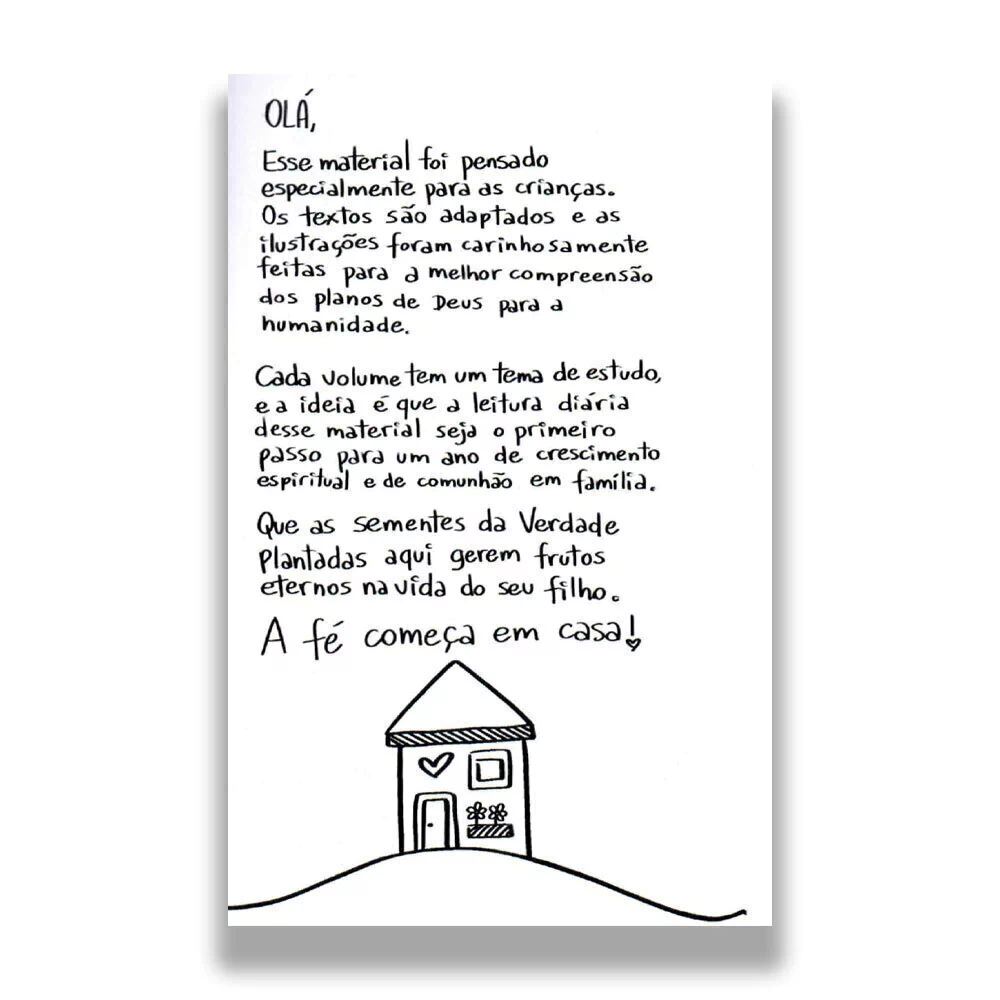 OLÁ,
Esse material foi pensado
especialmente para as crianças.
Os textos são adaptados e as
ilustrações foram carinhosamente
feitas para a melhor compreensão
dos planos de Deus para a
humanidade.
Cada volume tem um tema de estudo,
e a ideia é que a leitura diária
desse material seja o primeiro
passo para um ano de crescimento
espiritual e de comunhão em família.
Que as sementes da Verdade
Plantadas aqui gerem frutos
eternos na vida do seu filho.
A fé começa em casa!